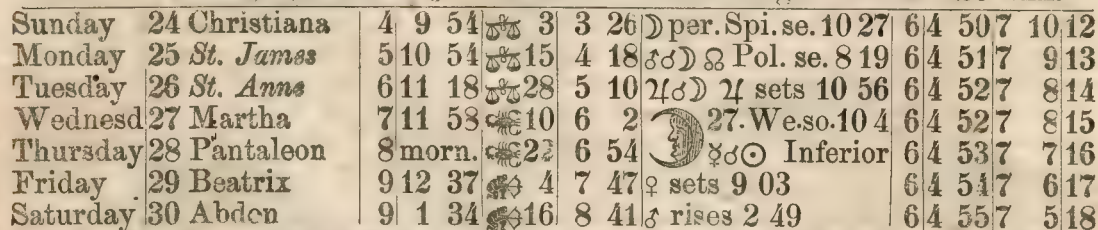 Sunday 24 Christiana 4 9 54 ♎ 3 3 26 ☽ per. Spi. se. 10 27 6 4 50 7 10 12
Monday 25 St. James 5 10 54 ♎ 15 4 18 ♂☌☽ ☊ Pol. se. 8 19 6 4 51 7 9 13
Tuesday 26 St. Anne 6 11 18 ♎ 28 5 10 ♃☌☽ ♃ sets 10 56 6 4 52 7 8 14
Wednesd 27 Martha 7 11 58 ♏ 10 6 2 27. We. so. 10 4 6 4 52 7 8 15
Thursday 28 Pantaleon 8 morn. ♏ 22 6 54 ☿☌☉ Inferior 6 4 53 7 7 16
Friday 29 Beatrix 9 12 37 ♐ 4 7 47 ♀ sets 9 03 6 4 54 7 6 17
Saturday 30 Abdon 9 1 34 ♐ 16 8 41 ♂ rises 2 49 6 4 55 7 5 18